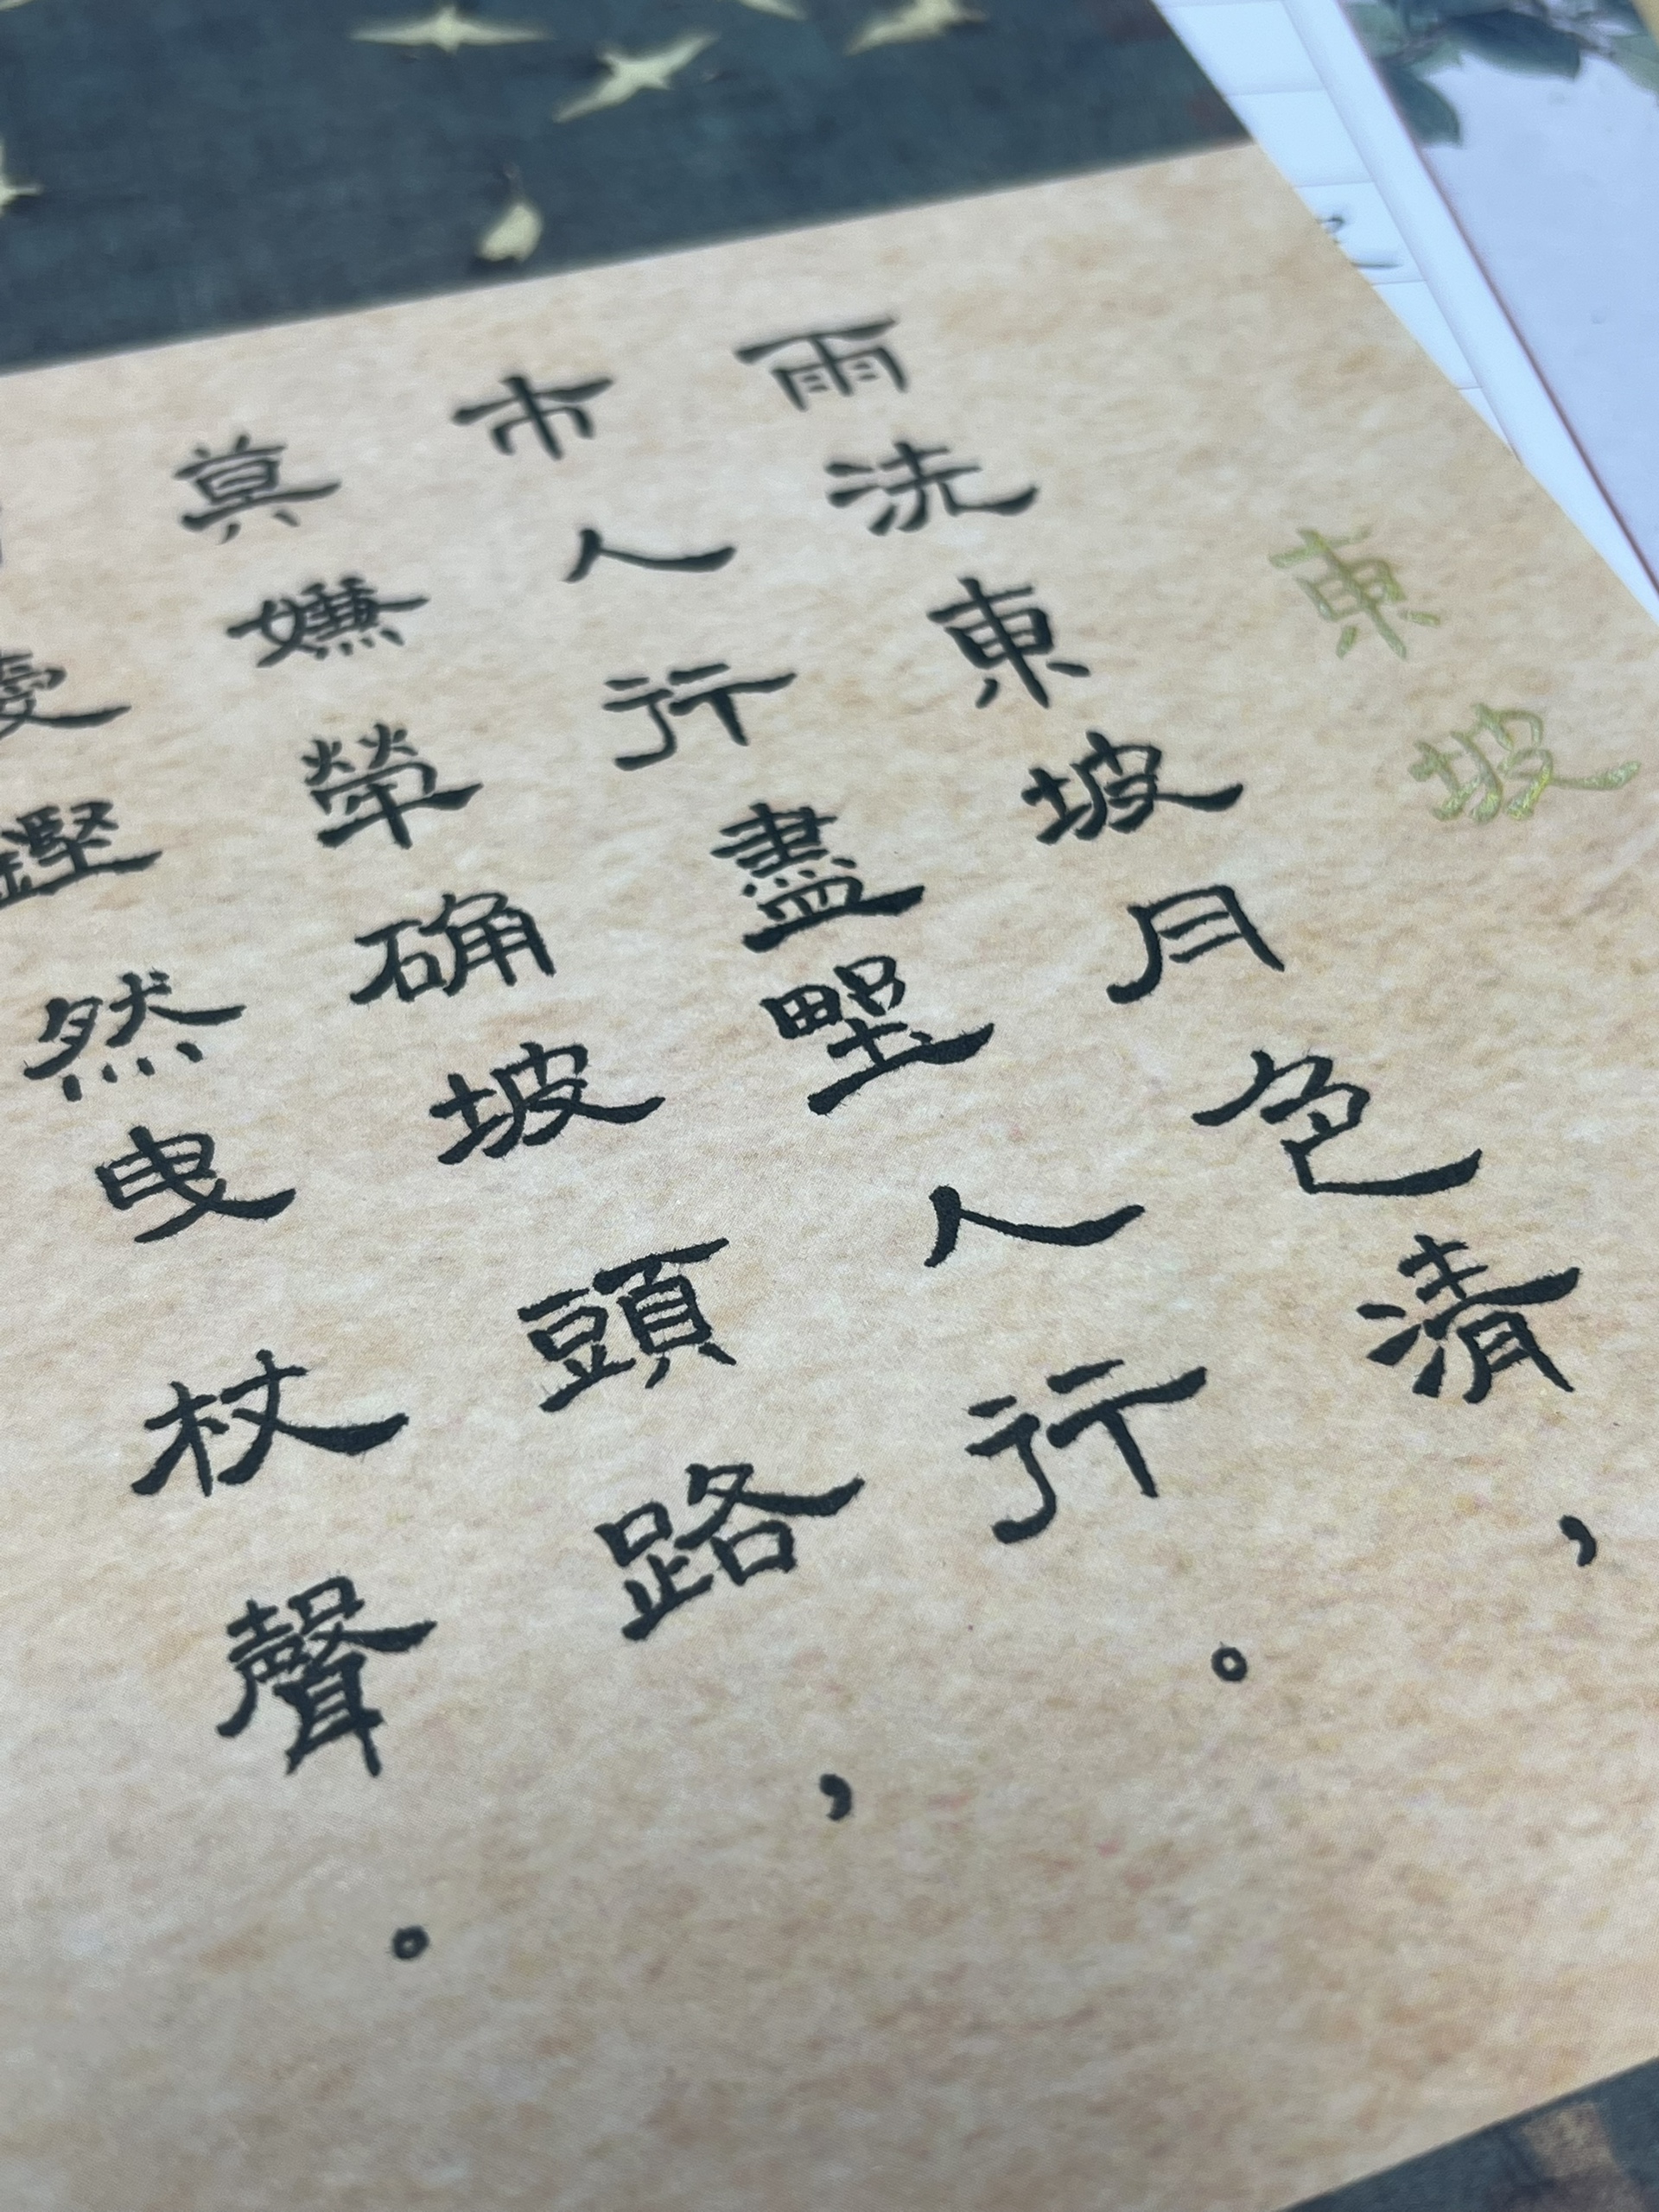 東坡
雨洗東坡月色清，
市人行盡野人行。
莫嫌犖确坡頭路，
愛鏗然曳杖聲。